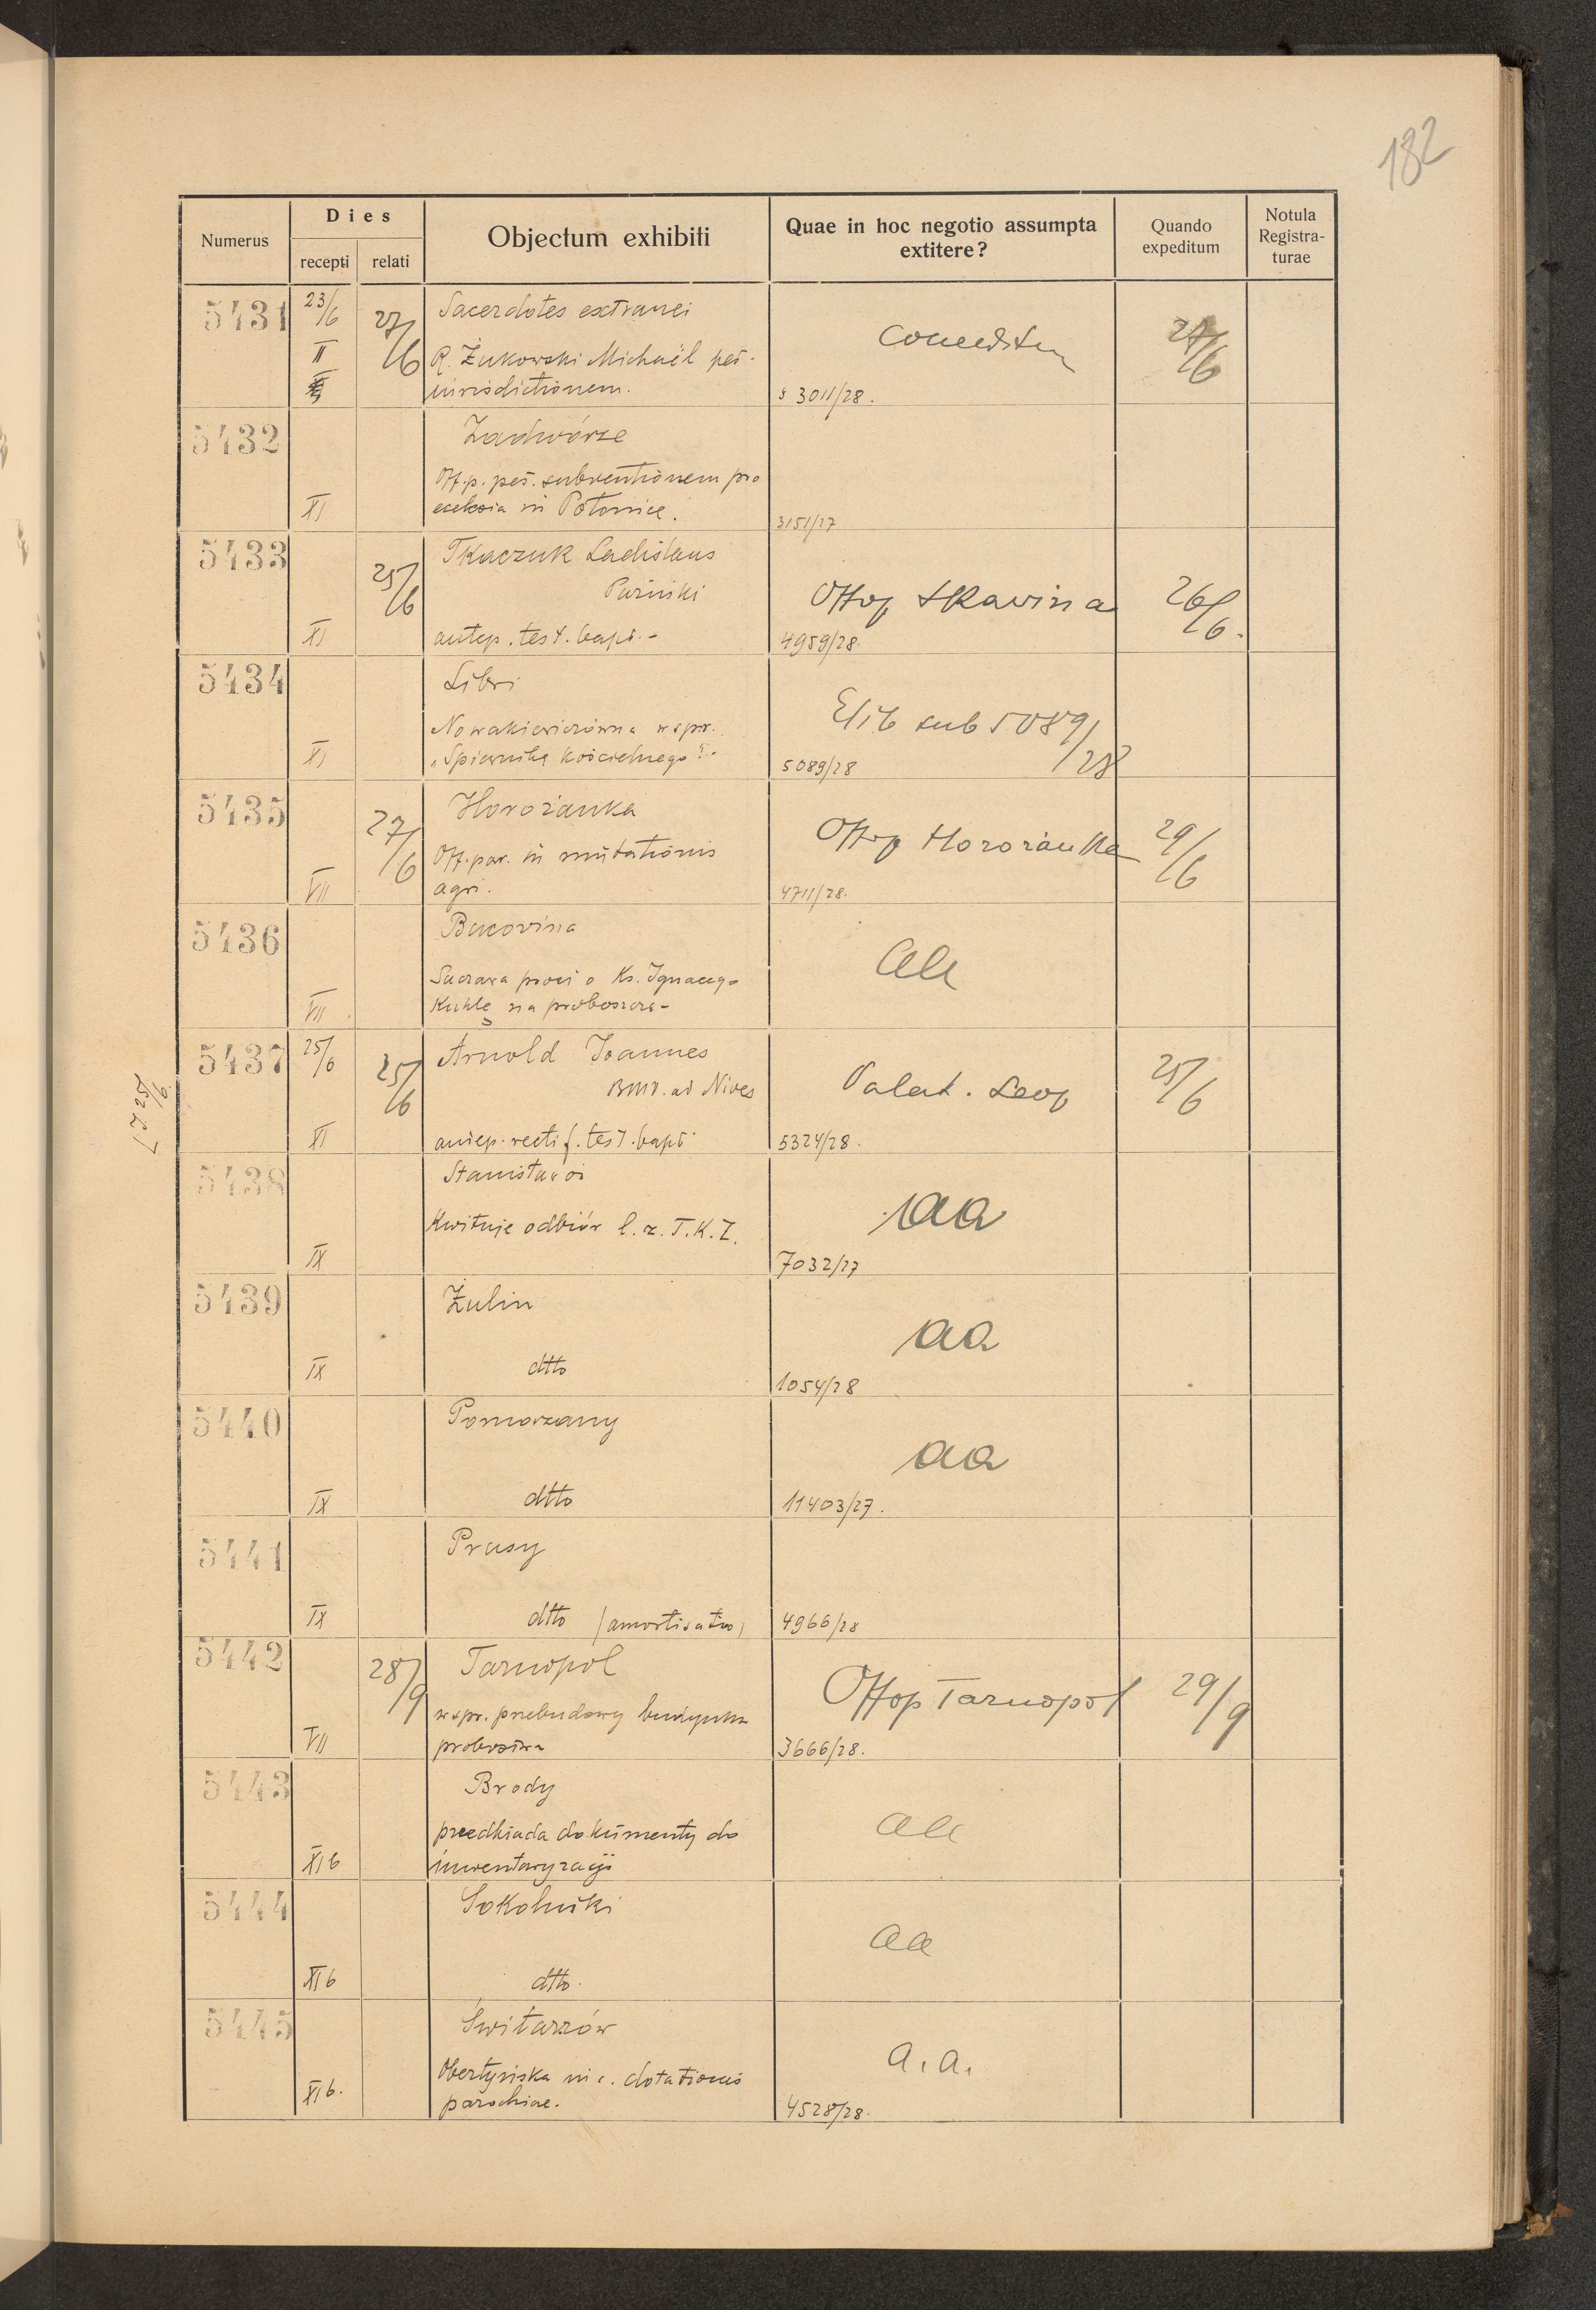 182
Numerus
Dies
recepti
relati
Objectum exhibiti
Quae in hoc negotio assumpta
extitere?
Quando
expeditum
Notula
Registra-
turae
5431
23/6
II
27/6
Sacerdotes extranei
R. Żukowski Michaël pet.
jurisdictionem.
3011/28.
27/6
5432
XI
Zadwórze
Off. p. pet. subventionem pro
ecclesia in Połonice.
3151/27
5433
XI
25/6
Tkaczuk Ladislaus
antep. test. bapt. -
Offop Skavina
4959/28.
26/6.
5434
XI
Libri
Nowakiewiczówna w spr.
„Śpiewnika kościelnego".
Elib sub 5089/28
5089/28
5435
VII
27/6
Horożanka
Off. par. in mutationis
agri.
Offop Horożanka
4711/28.
29/6
5436
VII
Bucovina
Suczawa prosi o Ks. Ignacego
Kuklę na proboszcza-
aa
5437
25/6
XI
25/6
Arnold Joannes
BMV. ad Nives
antep. rectif. test. bapt.
Palat. Leop
5324/28.
25/6
5438
IX
Stanisławów
Kwituje odbiór l. z. T.K.Z.
aa
7032/27
5439
IX
Żulin
dtto
aa
1054/28
5440
IX
Pomorzany
dtto
aa
11403/27.
5441
IX
Prusy
dtto /amortisatio/
4966/28
5442
VII
28/9
Tarnopol
w spr. przebudowy budynku
probostwa
Offop Tarnopol
3666/28.
29/9
5443
XIb
Brody
przedkłada dokumenty do
inwentaryzacji
aa
5444
XIb
Sokolniki
dtto.
aa
5445
XIb.
Świtarzów
Obertyńska in c. dotationis
parochiae.
a. a.
4528/28.